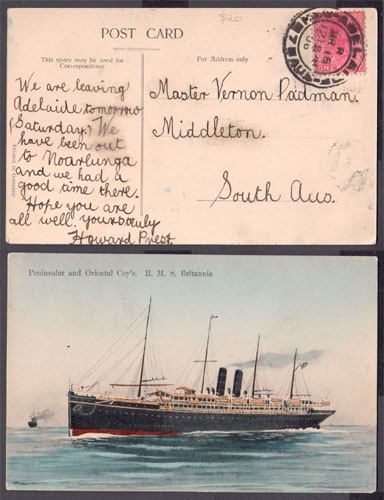 $20
POST CARD
This space may be used for
Correspondence
For Address only
We are leaving
Adelaide tomorrow
(Saturday.) We
have been out
to Noarlunga
and we had a
good time there.
Hope you are
all well. yours truly
Howard Prest.
Master Vernon Padman.
Middleton.
South Aus.
Printed in Germany
ADELAIDE
Peninsular and Oriental Coy's. R. M. S. Britannia